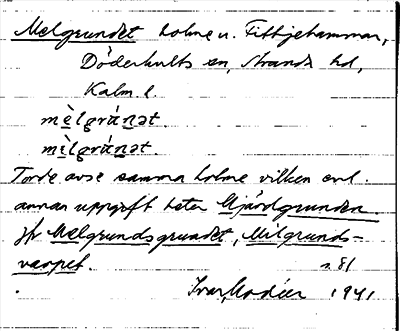 Melgrundet holme u. Fittjehammar,
Döderhults sn, Stranda hd,
Kalm l.
mèlgrúnət.
mìlgrúnət.
Torde avse samma holme vilken enl.
annan uppgift heter Mjärdgrunden.
jfr Melgrundsgrundet, Milgrunds-
varpet. s. 81
Ivar Modéer 1941